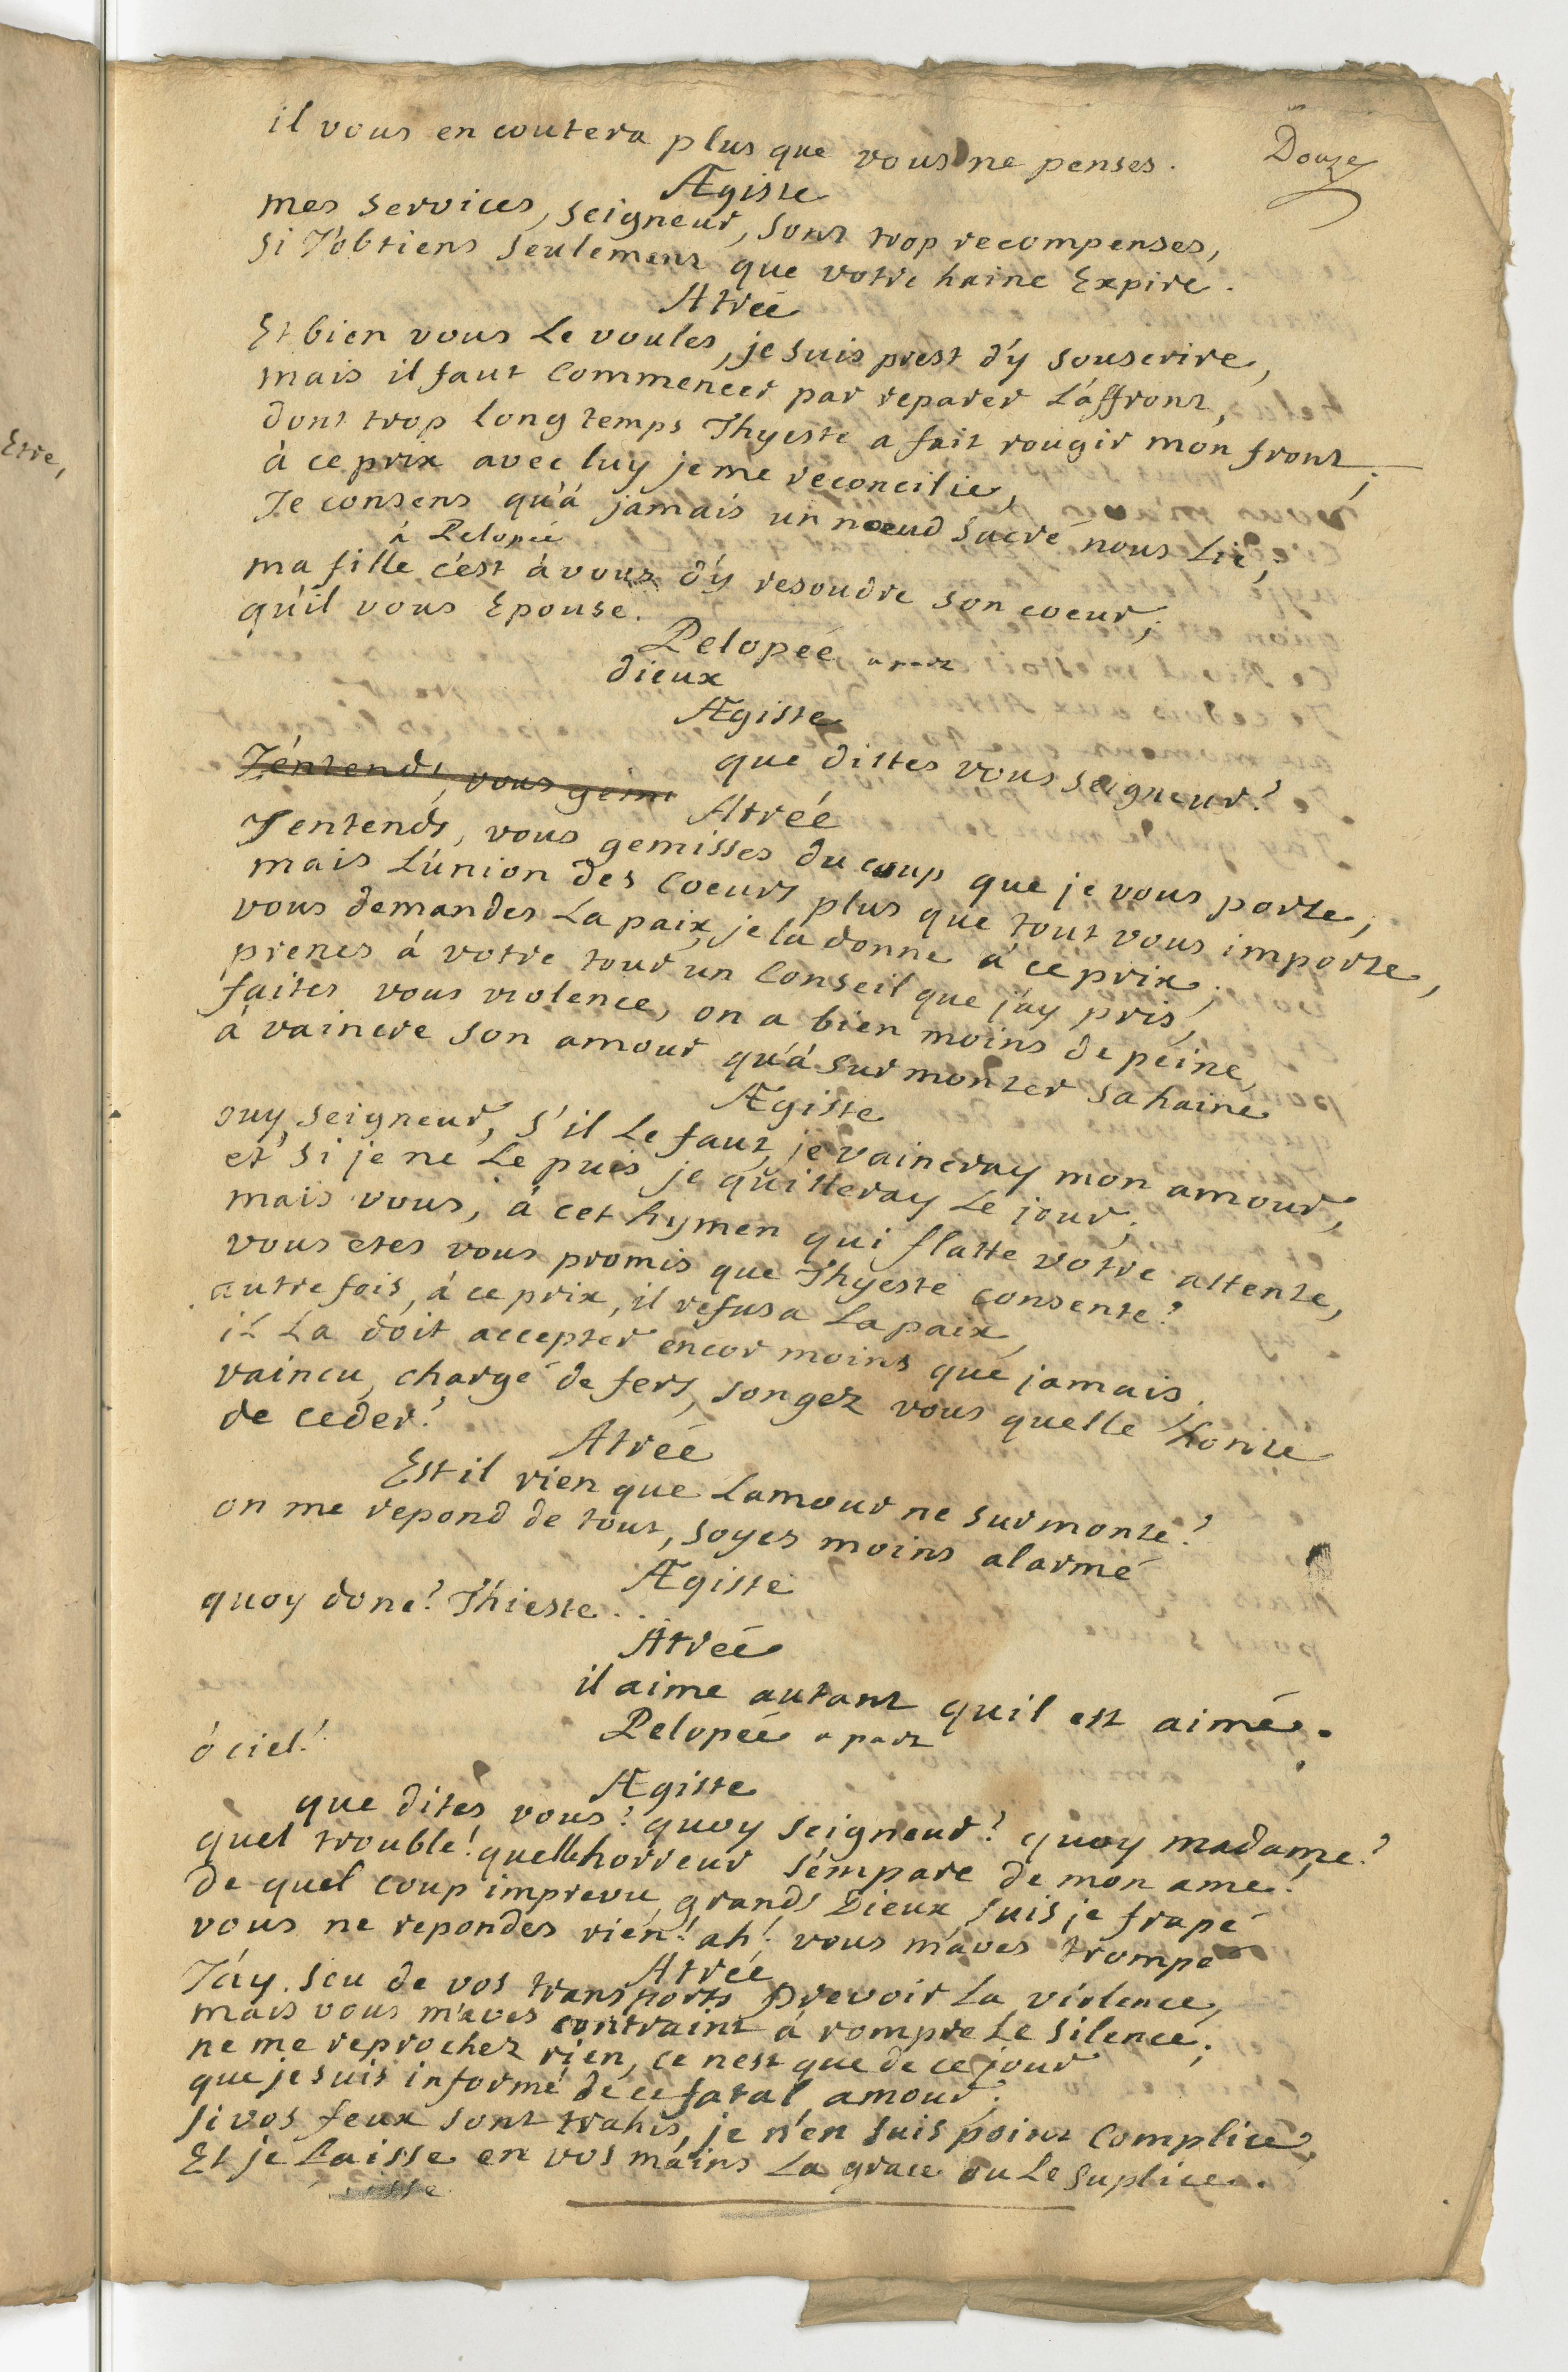 Etre,
il vous en coutera plus que vous ne penses.
Douze
Ægiste
mes services, seigneur, sont trop recompenses,
si J'obtiens seulement que votre haine Expire.
Atrée
Et bien vous Le voules, je suis prest d'y souscrire,
mais il faut Commencer par reparer L'affront,
dont trop long temps Thyeste a fait rougir mon front;
à ce prix avec luy je me reconcilie,
Je consens qu'à jamais un noeud sacré nous Lie,
à Pelopée
ma fille c'est à vous d'y resoudre son coeur;
qu'il vous Epouse.
Pelopée a part
dieux
Ægiste
que dittes vous seigneur?
J'entends, vous gemi
Atrée
J'entends, vous gemisses du coup que je vous porte;
mais L'union des Coeurs plus que tout vous importe,
vous demandes La paix, je la donne à ce prix;
prenes à votre tour un Conseil que j'ay pris,
faites vous violence, on a bien moins de peine,
à vaincre son amour qu'à surmonter sa haine
Ægiste
ouy, seigneur, s'il Le faut, je vaincray mon amour,
et si je ne Le puis je quitteray Le jour;
mais vous, à cet hymen qui flatte votre attente,
vous etes vous promis que Thyeste consente?
autre fois, à ce prix, il refusa La paix,
iL La doit accepter encor moins que jamais.
vaincu, chargé de fers, songez vous quelle honte
de ceder?
Atrée
Est il rien que L'amour ne surmonte?
on me repond de tout, soyes moins alarmé
Ægiste
quoy donc? Thieste...
Atrée
il aime autant qu'il est aimé.
Pelopée a part
ó ciel!
Ægiste
que dites vous? quoy seigneur? quoy madame?
quel trouble! quelle horreur s'empare de mon ame!
de quel coup imprevu, grands Dieux, suis je frapé
vous ne repondes rien! ah! vous m'aves trompé
Atrée
J'ay sçu de vos transports prevoir La violence,
mais vous m'aves contraint à rompre Le silence;
ne me reprochez rien, ce n'est que de ce jour
que je suis informé de ce fatal amour;
si vos feux sont trahis, je n'en suis point Complice,
Et je Laisse en vos mains La grace ou Le suplice.